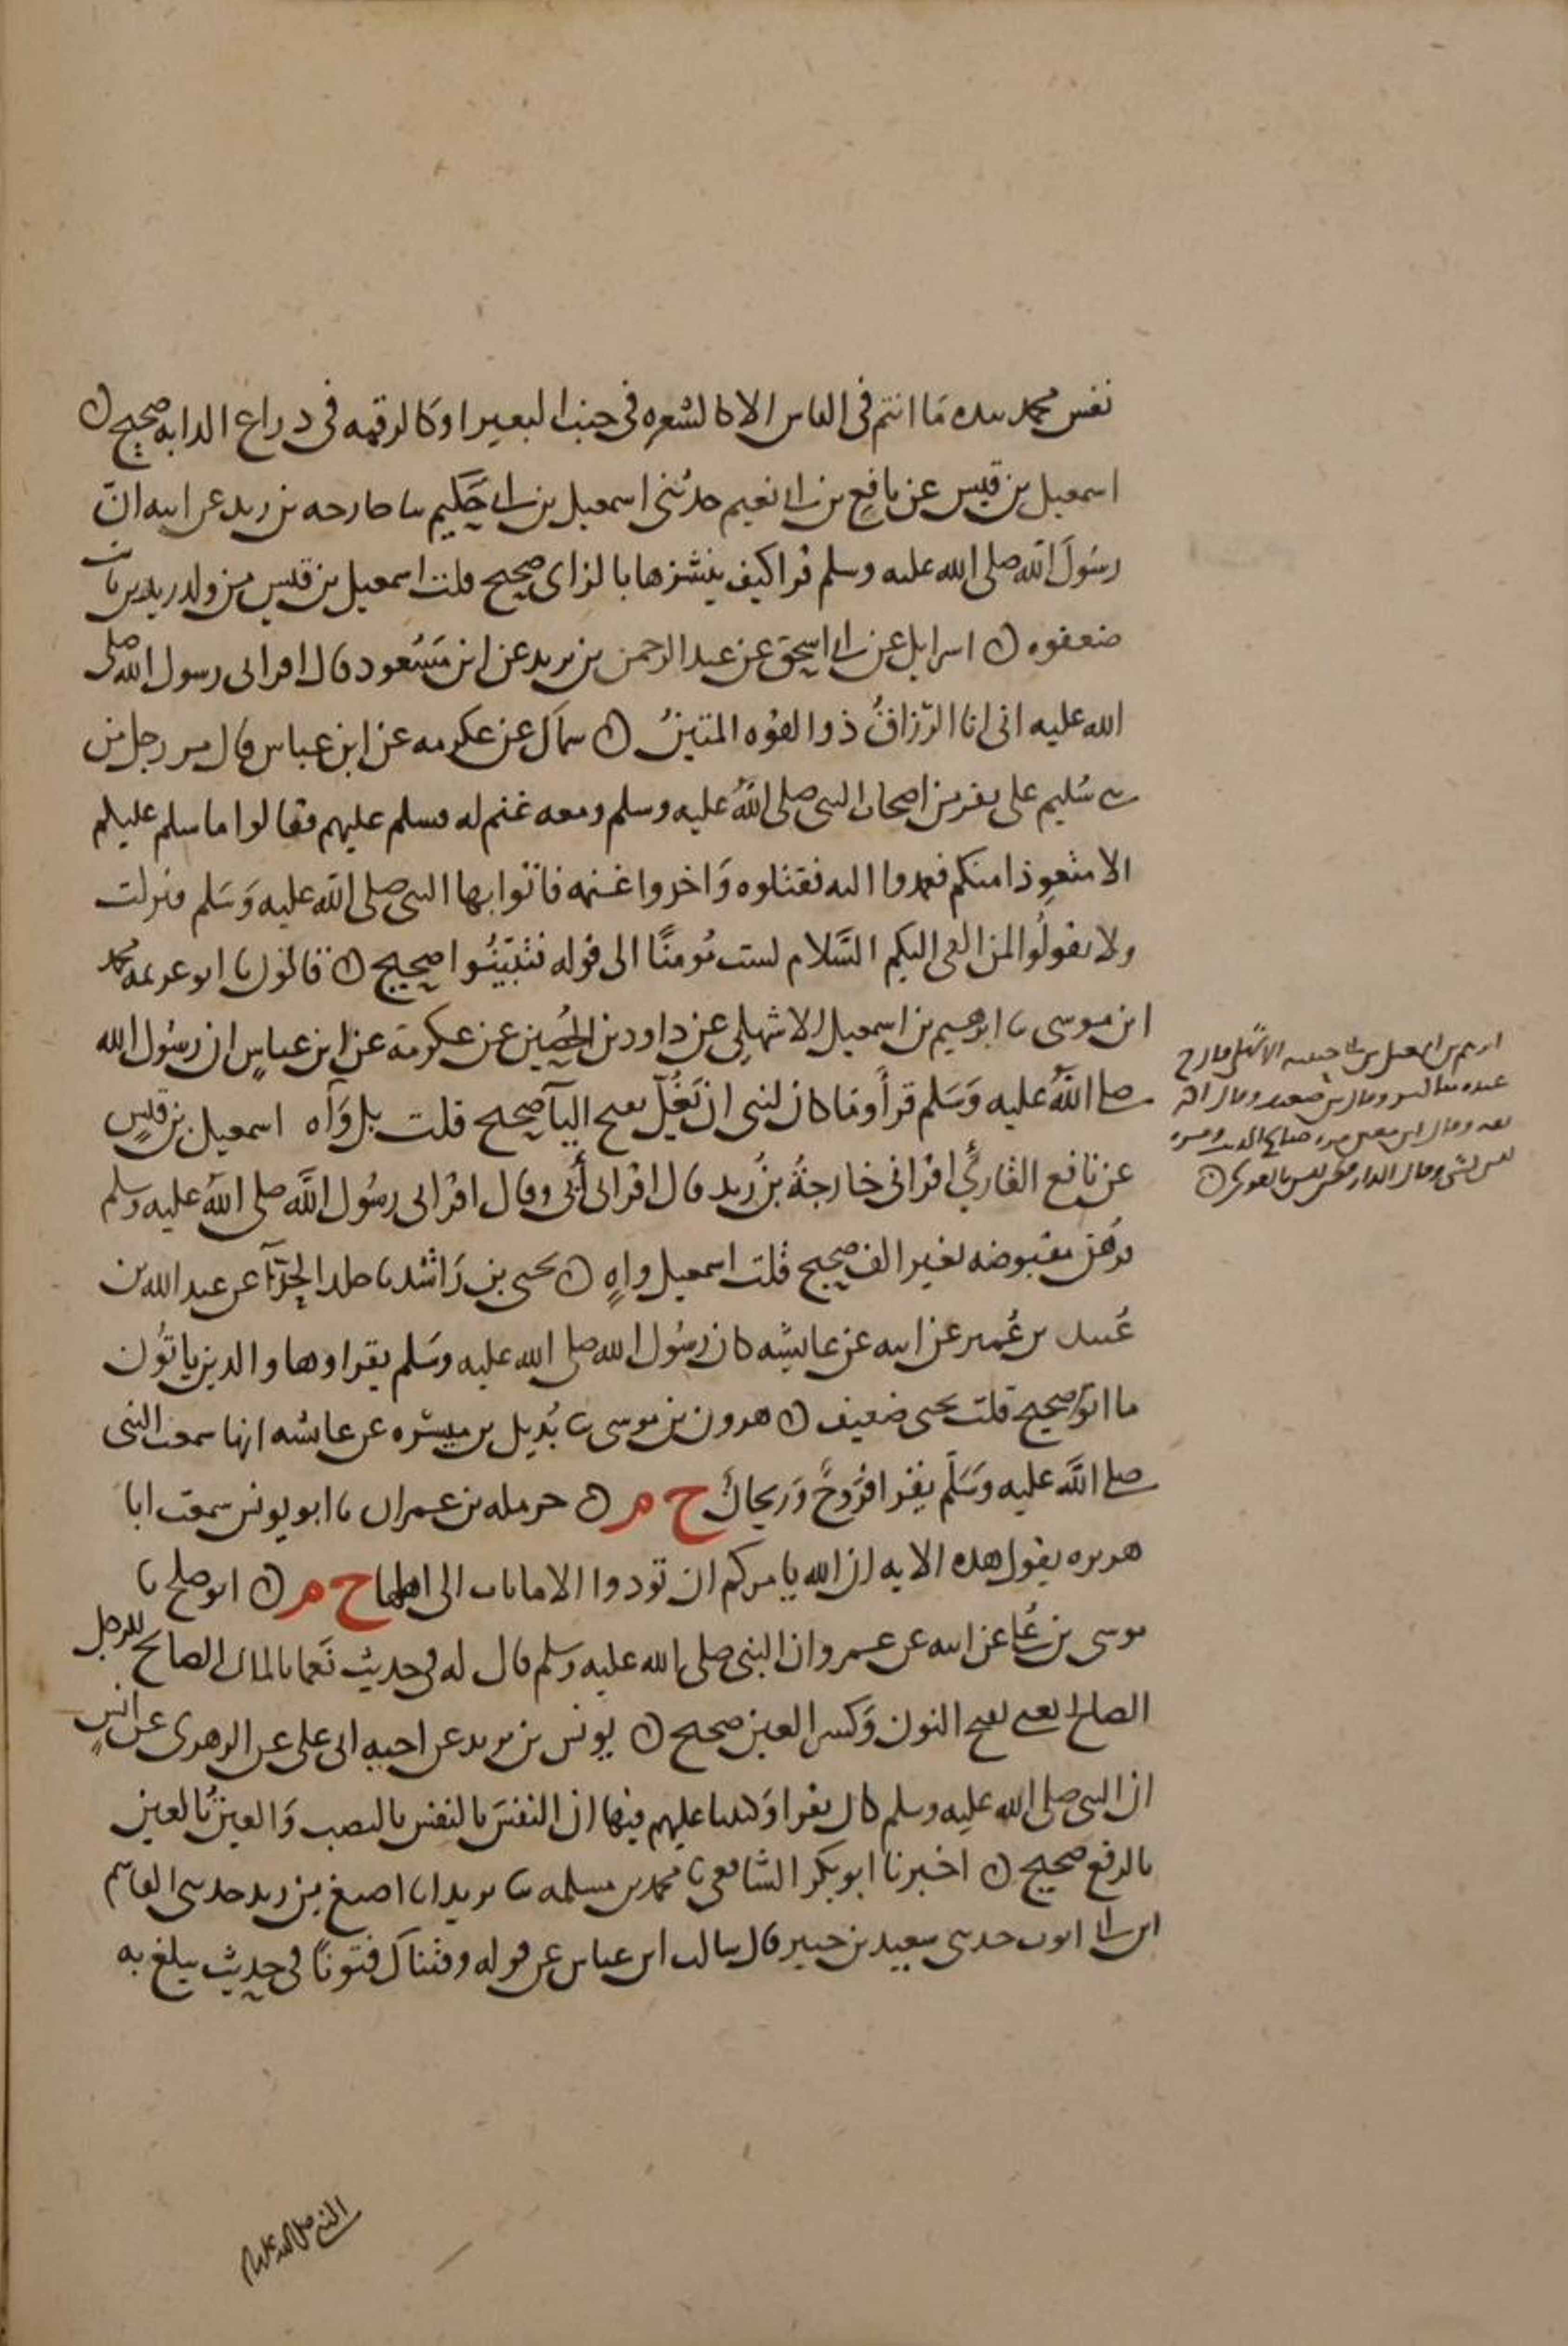 نفس محمد بيده ما انتم في الناس الا كالشعره في جنب البعير او كالرقمه في ذراع الدابه صحيح ن
اسمعيل بن قيس عن نافع بن ابي نعيم حدثني اسمعيل بن ابي حكيم ثنا خارجه بن زيد عن ابيه انّ
رسولَ الله صلى الله عليه وسلم قرا كيف ننشزها بالزاى صحيح قلت اسمعيل بن قيس من ولد زيد بن ثابت
ضعفوه ن اسرايل عن ابي اسحق عن عبد الرحمن بن يزيد عن ابن مسعود قال اقراني رسول الله صلى
الله عليه اني انا الرّزاقُ ذو القوه المتينُ ن سماك عن عكرمه عن ابن عباس قال مر رجل من
بني سُليم على نفر من اصحاب النبي صلى اللهُ عليه وسلم ومعه غنم له فسلم عليهم فقالوا ما سلم عليكم
الا متعوِذا منكم فعمدوا اليه فقتلوه وَاخذوا غنمه فاتوا بها النبي صلى الله عليه وَسَلم فنزلت
ولا تقولُوا لمن القى اليكم السَّلام لست مُومنًا الى قوله فتبَيَّنُوا صحيح ن قالون نا ابو غزيه محمد
ابن موسى نا ابرهيم بن اسمعيل الاشهلي عن داود بن الحُصين عن عكرمة عن ابن عباسٍ ان رسُول الله
صلى اللهُ عليه وَسَلم قرأ وما كان لنبي ان يَغُلّ بفتح اليآ صحيح قلت بل وَاه اسمعيل بن قيسٍ
عن نافع القارئ اقراني خارجةُ بن زيد قال اقراني أُبي وقال اقراني رسُول اللَّه صلى اللهُ عليه وسلم
فرهن مقبوضه بغير الف صحيح قلت اسمعيل واهٍ ن يحيى بن رَاشد نا خلد الحذآ عن عبد الله بن
عُبيد بن عُمير عن ابيه عن عايشه كان رسُول الله صلى الله عليه وسَلم يقراوها والذين ياتُون
ما اتوا صحيح قلت يحيى ضعيف ن هرون بن موسى نا بُديل بن ميسره عن عايشه انها سمعت النبي
صلى اللَّه عليه وسَلَّم يقرا فرُوحٌ وَريحانٌ خ م ن حرمله بن عمران نا ابو يونس سمعت ابا
هريره يقول هذه الايه ان الله يامركم ان تودوا الامانات الى اهلها خ م ن ابو صلح نا
موسى بن عُلي عن ابيه عن عمرو ان النبي صلى الله عليه وسلم قال له في حديث نَعما بالمال الصالح للرجل
الصالح يعني بفتح النون وَكسر العين صحيح ن يونس بن يزيد عن اخيه ابي علي عن الزهري عن انسٍ
ان النبي صلى الله عليه وسلم كان يقرا وَكتبنا عليهم فيها ان النفسَ بالنفس بالنصب وَالعينُ بالعين
بالرفع صحيح ن اخبرنا ابو بكر الشافعي نا محمد بن مسلمه نا يزيد انا اصبغ بن زيد حدثني القاسم
ابن ابي ايوب حدثني سعيد بن جبير قال سالت ابن عباس عن قوله وفتناك فتونًا في حديث يبلغ به
ابرهيم بن اسمعيل بن ابي حبيبه الاشهلي
لیس بشي وقال الدارقطني ليس بالقوي ن
النبي صلى الله عليه وسلم